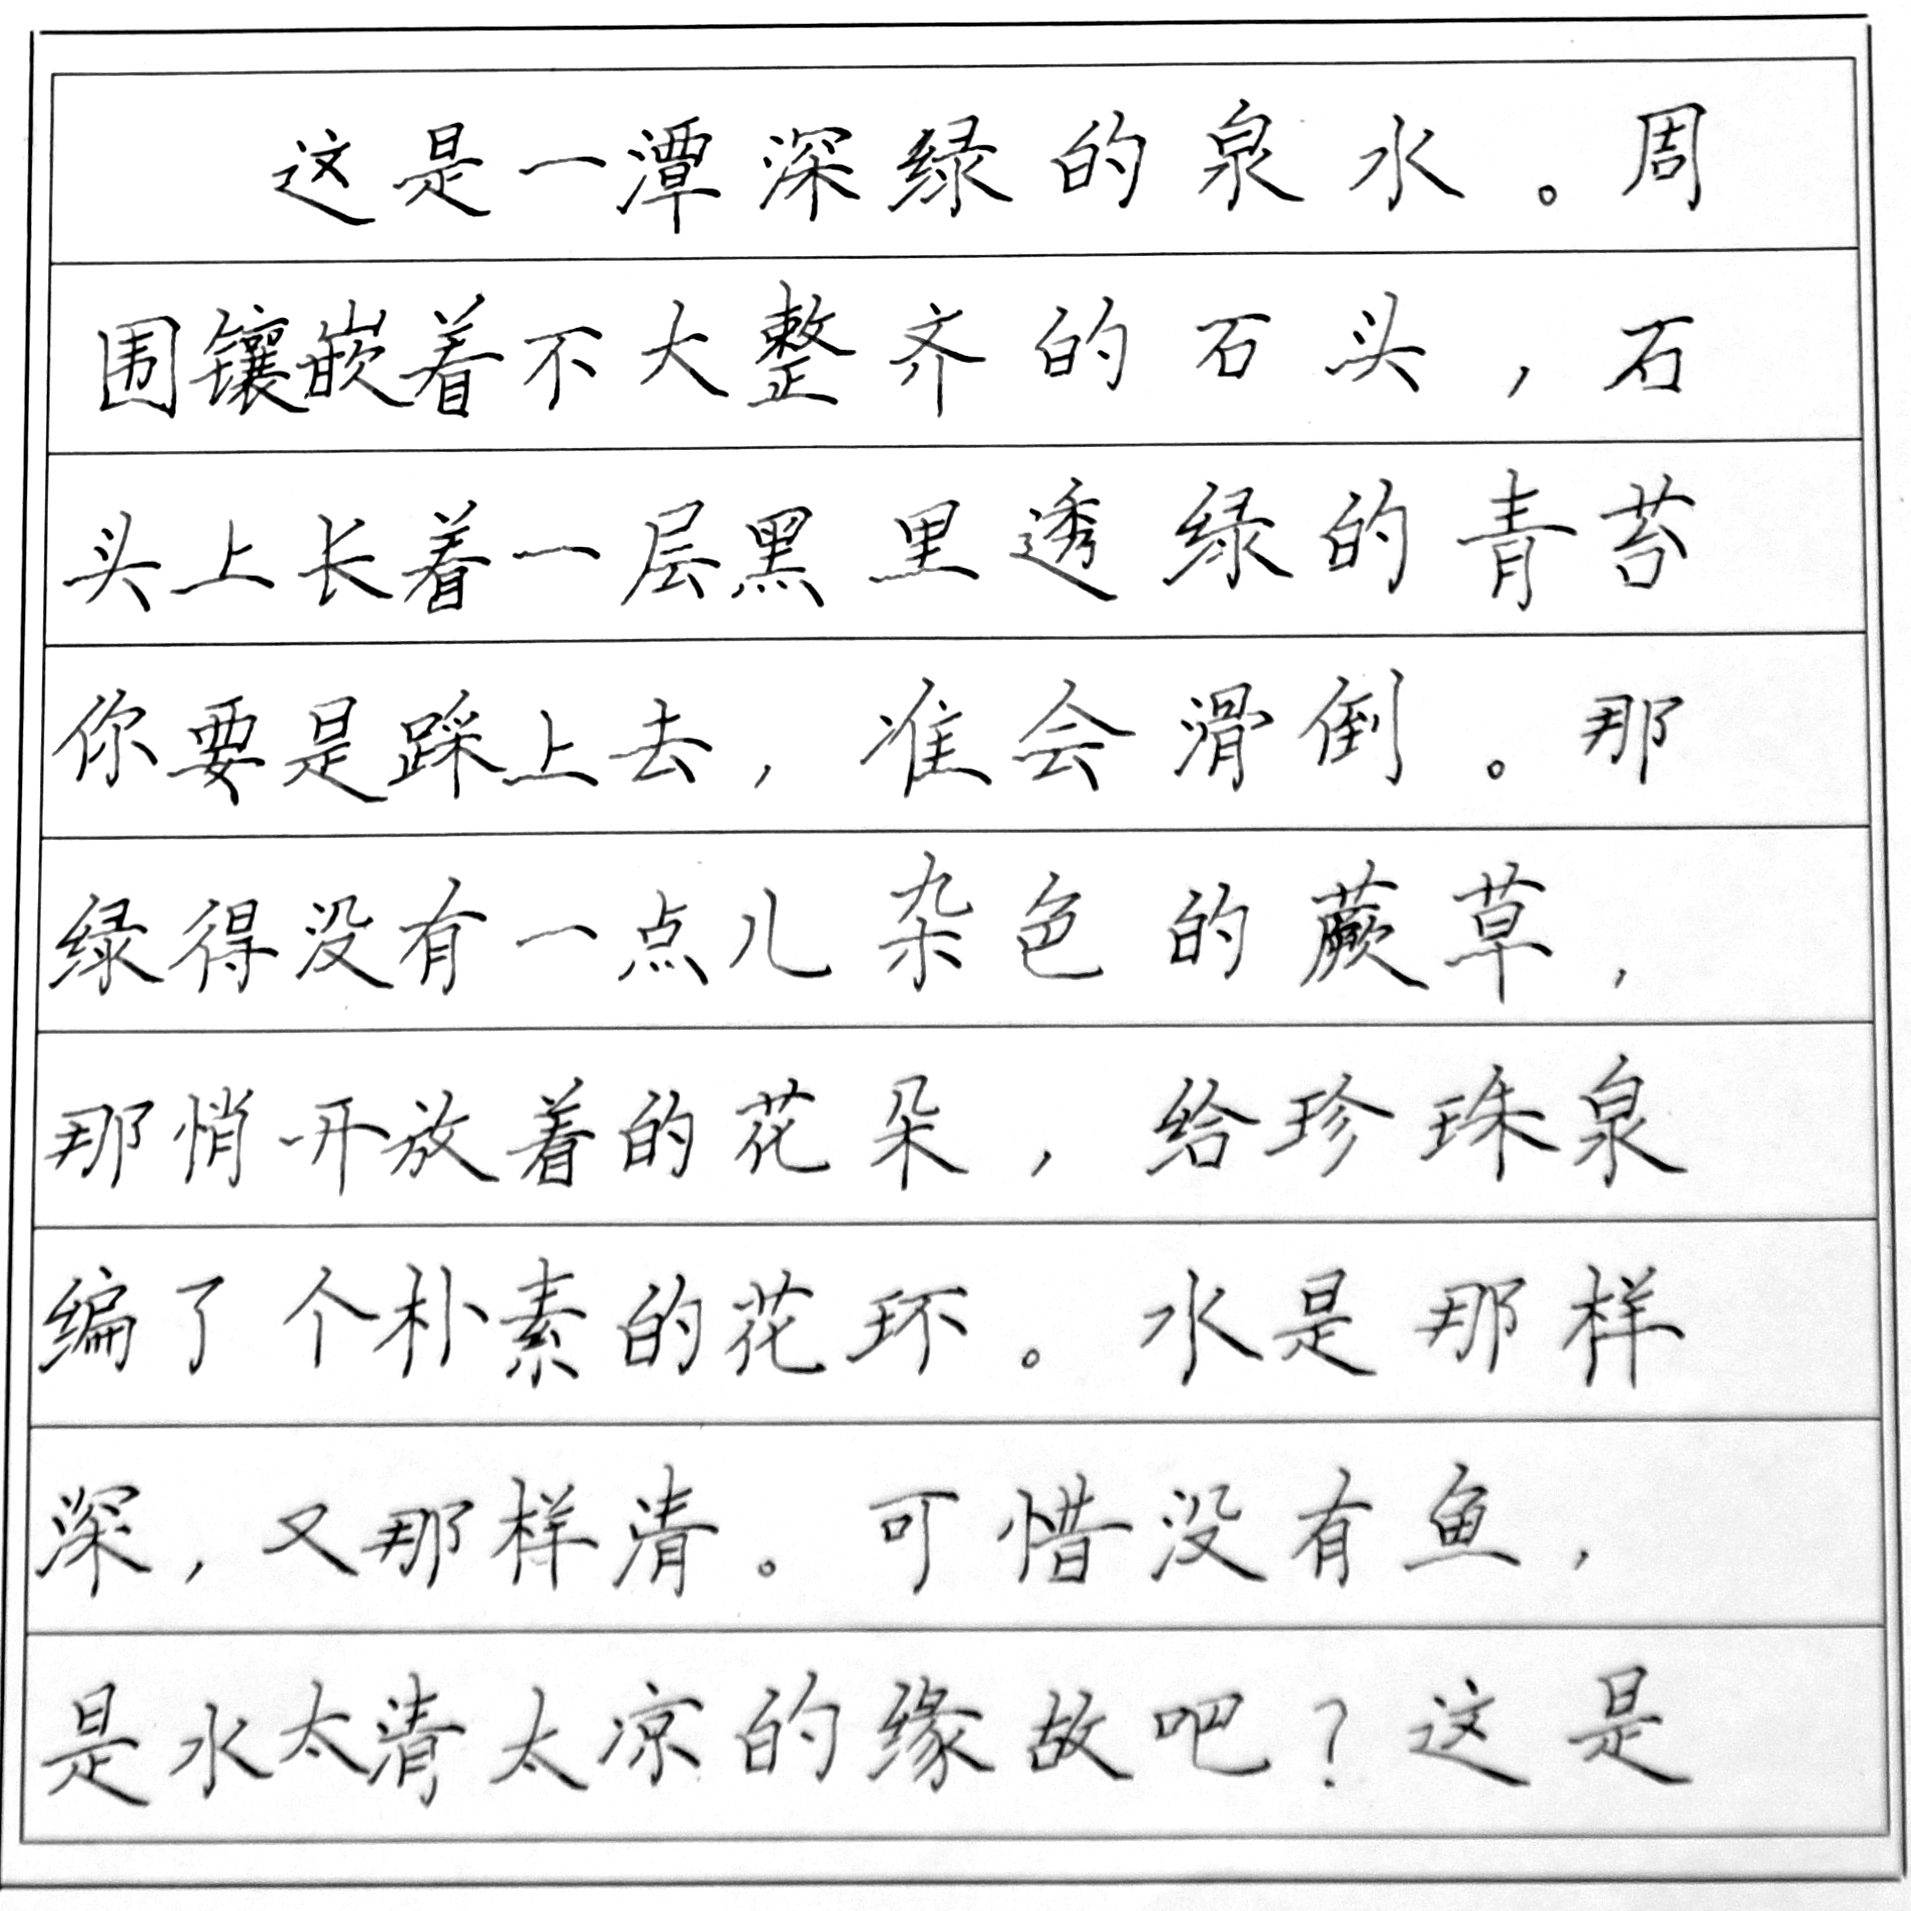 这是一潭深绿的泉水。周
围镶嵌着不大整齐的石头，石
头上长着一层黑里透绿的青苔
你要是踩上去，准会滑倒。那
绿得没有一点儿杂色的蕨草，
那悄开放着的花朵，给珍珠泉
编了个朴素的花环。水是那样
深，又那样清。可惜没有鱼，
是水太清太凉的缘故吧？这是